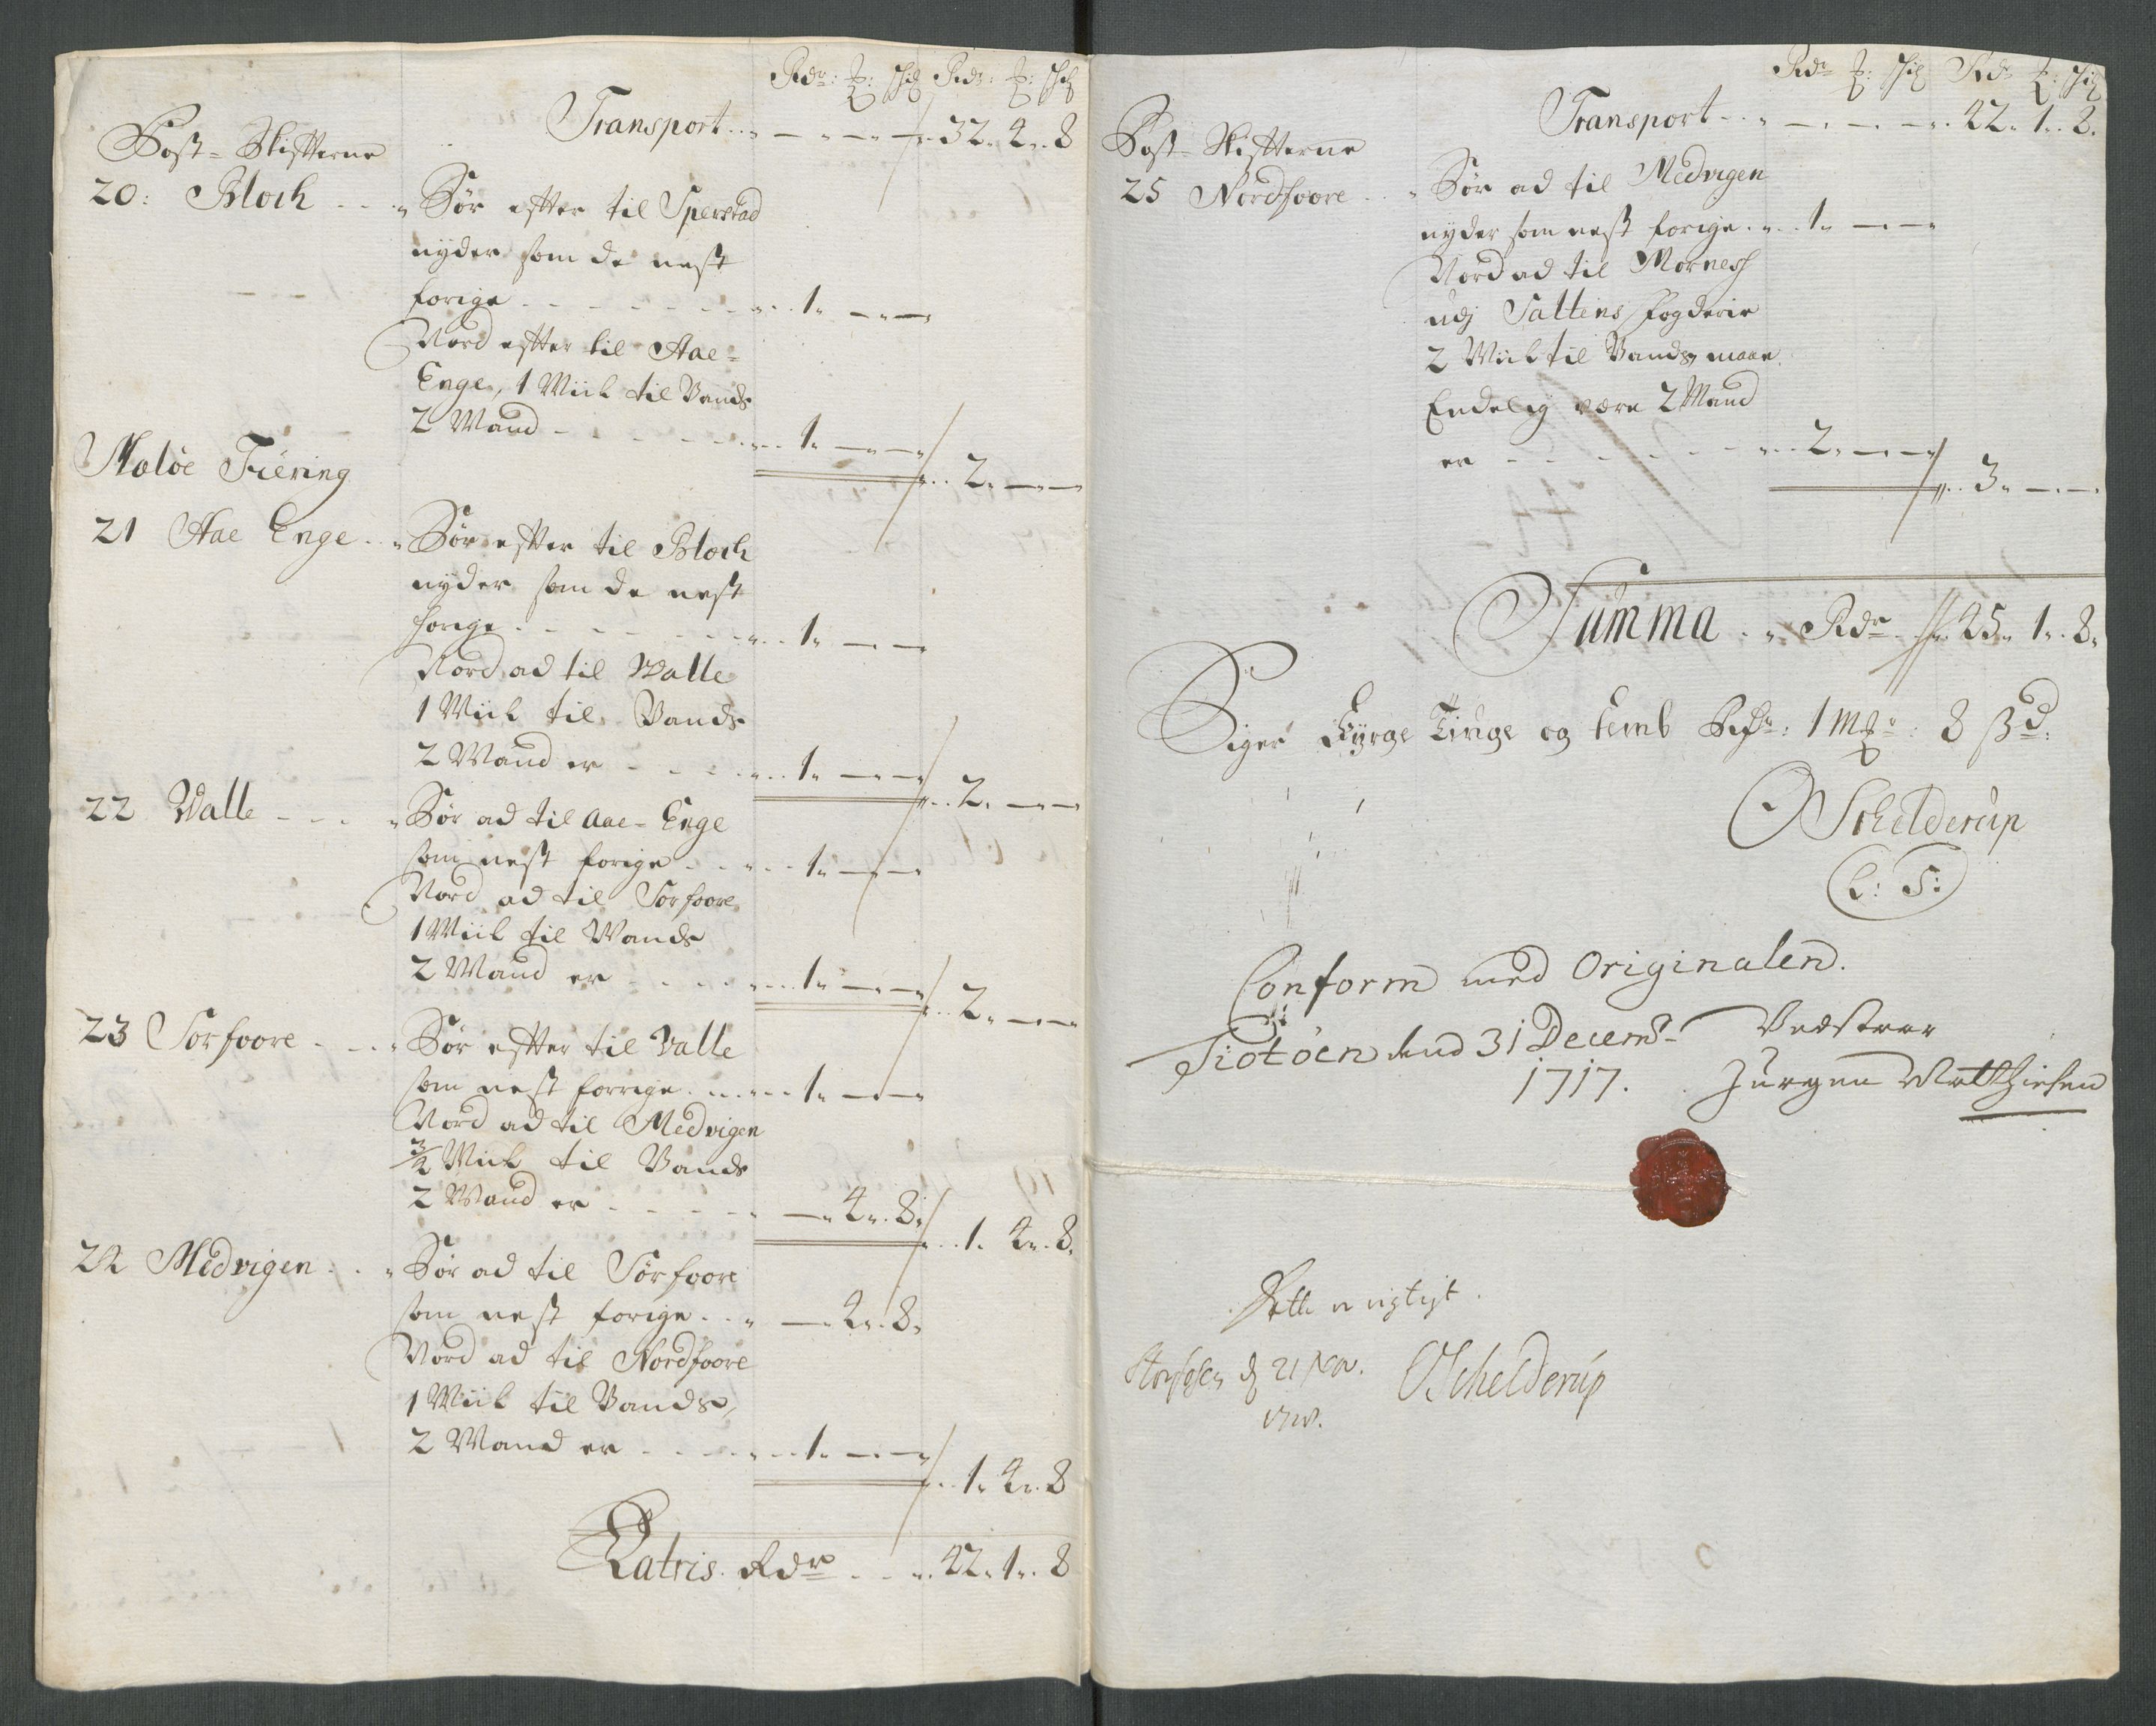 Rdr: ℔: sch Rdr: ℔: sch
Transport . . 32. 4. 8
Post-Skiffterne
20: Bloch . . Sør effter til Sperstad
nyder som de nest
forige . . 1. — —
Nord effter til Aae-
Enge, 1 Miil til Vands
2 Mand . . 1. — —
2. — —
Maløe Fiering
21 Aae Enge . . Sør effter til Bloch
nyder som de nest
forige . . 1. — —
Nord ad til Walle
1 Miil til Vands
2 Mand er . . 1. — —
2. — —
22 Walle . . Sør ad til Aae-Enge
som nest forige . . 1. — —
Nord ad til Sørfoore
1 Miil til Wands
2 Mand er . . 1. — —
2. — —
23 Sørfoore . . Sør effter til Valle
som nest forrige . . 1. — —
Nord ad til Medvigen
3/4 Miil til Vands
2 Mand er . . — 4. 8.
1. 4. 8.
24 Medvigen . . Sør ad til Sørfoore
som nest forige . . — 4. 8.
Nord ad til Nordfoore
1 Miil til Vands,
2 Mand er . . 1. — —
1. 4. 8
Latris. Rdr . . 42. 1. 8
Rdr ℔: sch Rdr ℔: sch
Transport . . 42. 1. 8.
Post-Skiffterne
25 Nordfoore . . Sør ad til Medvigen
nyder som nest forige . . 1. — —
Nord ad til Mornes
udj Saltens fogderie
2 Miil til Vands, maae
Endelig være 2 Mand
er . . 2. — —
3. — —
Summa . . Rdr . . 45. 1. 8.
Siger Fyrge Tiuge og femb Rdr: 1 m℔: 8 sd.
OSchelderup
L: S:
Conform med Originalen.
Tiøtøen dend 31 Decembr Vedstaar
1717. Jürgen Matthiesen
Dette er rigtigt.
d 21 OSchelderup